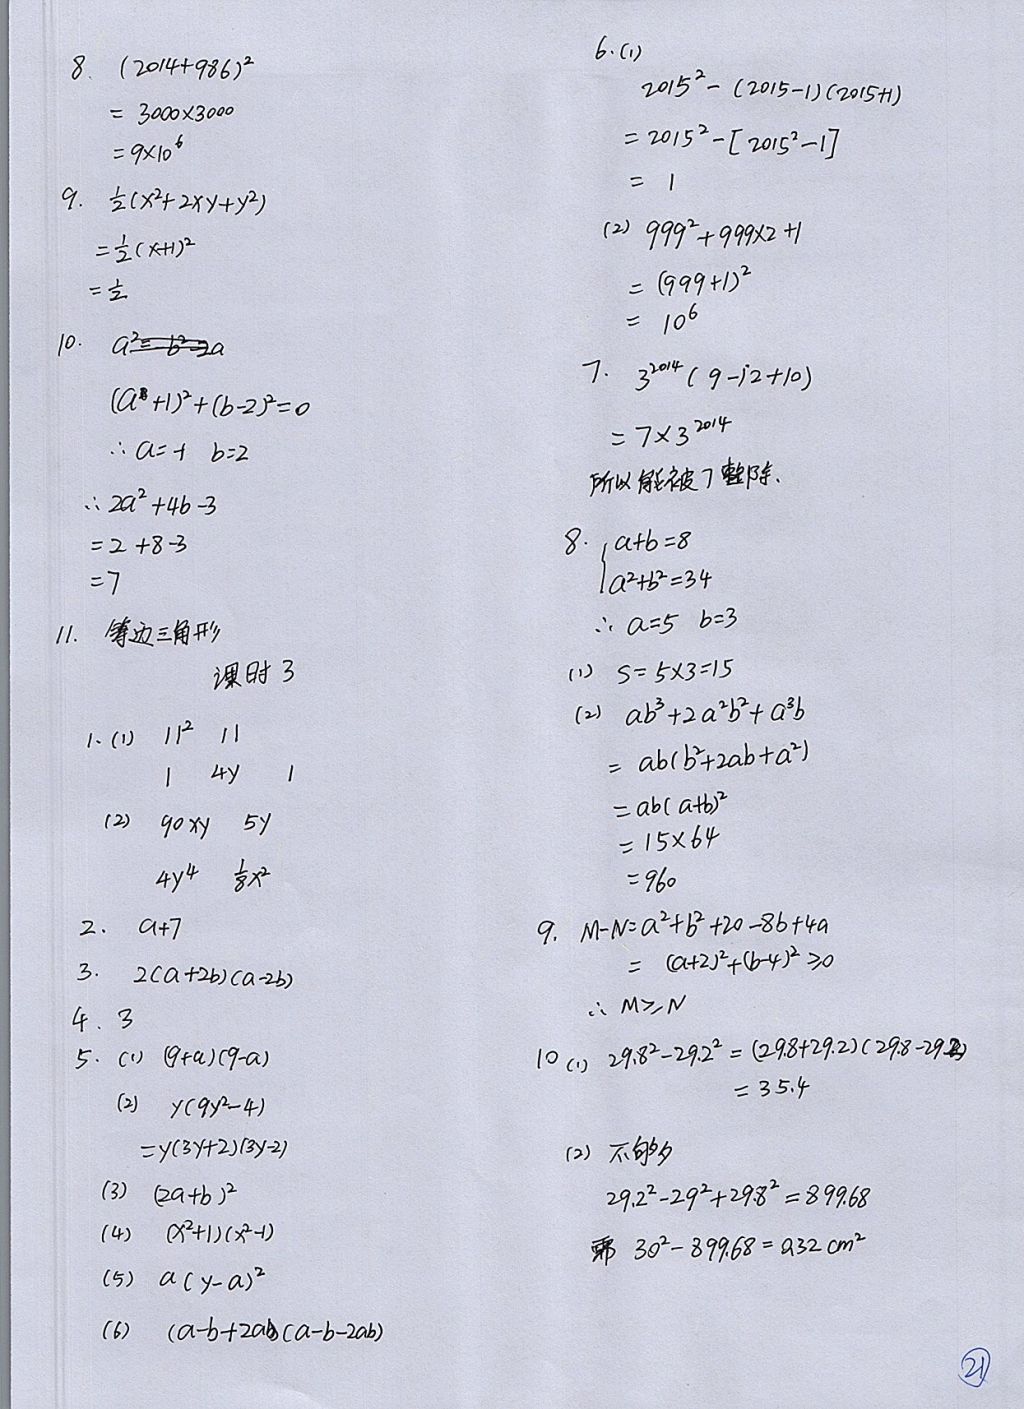 8. (2014+986)²
= 3000×3000
= 9×10⁶
9. ½(x²+2xy+y²)
= ½(x+1)²
= ½
10. a²= b²-2a
(a+1)²+(b-2)²=0
∴ a=-1 b=2
∴ 2a²+4b-3
= 2+8-3
= 7
11. 等边三角形
课时3
1. (1) 11² 11
1 4y 1
(2) 90xy 5y
4y⁴ ⅛x²
2. a+7
3. 2(a+2b)(a-2b)
4. 3
5. (1) (9+a)(9-a)
(2) y(9y²-4)
= y(3y+2)(3y-2)
(3) (2a+b)²
(4) (x²+1)(x²-1)
(5) a(y-a)²
(6) (a-b+2ab)(a-b-2ab)
6. (1)
2015²-(2015-1)(2015+1)
= 2015²-[2015²-1]
= 1
(2) 999²+999×2+1
= (999+1)²
= 10⁶
7. 3²⁰¹⁴(9-12+10)
= 7×3²⁰¹⁴
所以能被7整除.
8. { a+b=8
a²+b²=34
∴ a=5 b=3
(1) S=5×3=15
(2) ab³+2a²b²+a³b
= ab(b²+2ab+a²)
= ab(a+b)²
= 15×64
= 960
9. M-N=a²+b²+20-8b+4a
= (a+2)²+(b-4)²≥0
∴ M≥N
10 (1) 29.8²-29.2²=(29.8+29.2)(29.8-29.2)
= 35.4
(2) 不够
29.2²-29²+29.8²=899.68
需 30²-899.68=0.32cm²
21